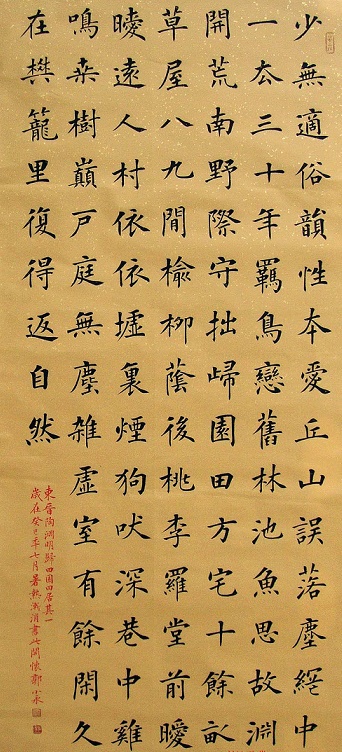 少無適俗韻性本愛丘山誤落塵網中
一去三十年羈鳥戀舊林池魚思故淵
開荒南野際守拙歸園田方宅十餘畝
草屋八九間榆柳蔭後桃李羅堂前曖
曖遠人村依依墟裏煙狗吠深巷中雞
鳴桑樹巔戶庭無塵雜虛室有餘閑久
在樊籠里復得返自然
東晉陶淵明歸田園田居其一
歲在癸巳年七月暑熱減消書